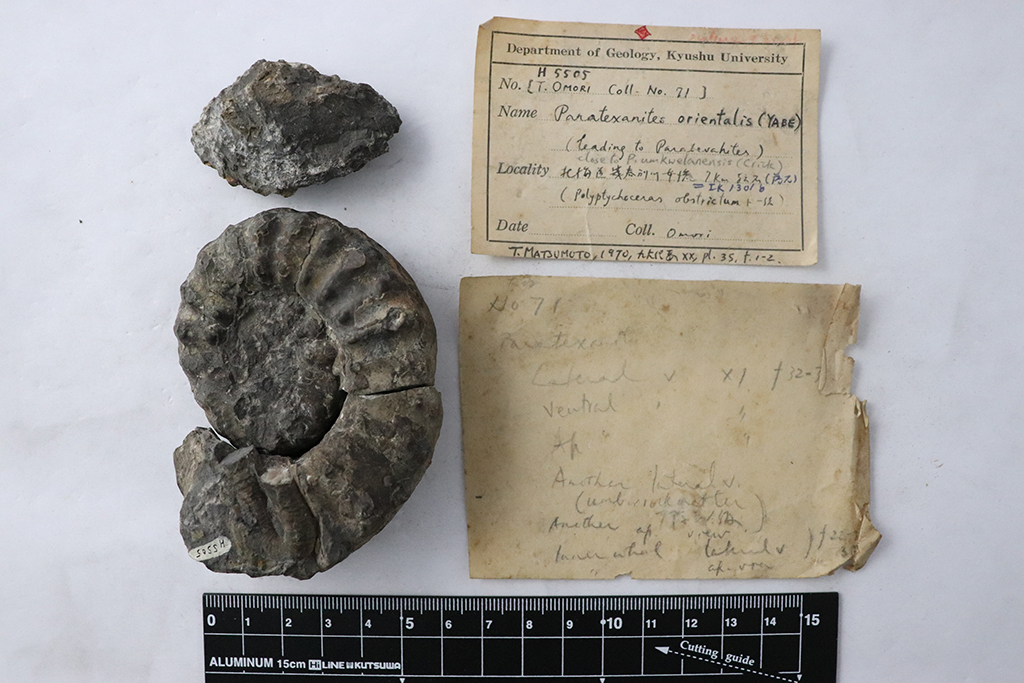 Department of Geology, Kyushu University
H 5505
No. [T. OMORI Coll. No. 71]
Name Paratexanites orientalis (YABE)
(leading to Parabevahites)
close to P. umkwelanensis (Crick)
Locality 北海道 7 Km
= IK 1301 b
(Polyptychoceras obstrictum + -
Date Coll. Omori
T. MATSUMOTO, 1970, XX, pl. 35, f. 1-2.
No 71
Paratexanites
Lateral v ×1 f 32-3
Ventral " "
Ap " "
Another lateral v.
Another ap view
Inner whorl lateral v
" ap. view
H5505
0 1 2 3 4 5 6 7 8 9 10 11 12 13 14 15
Cutting guide
ALUMINUM 15cm Hi LINE KUTSUWA